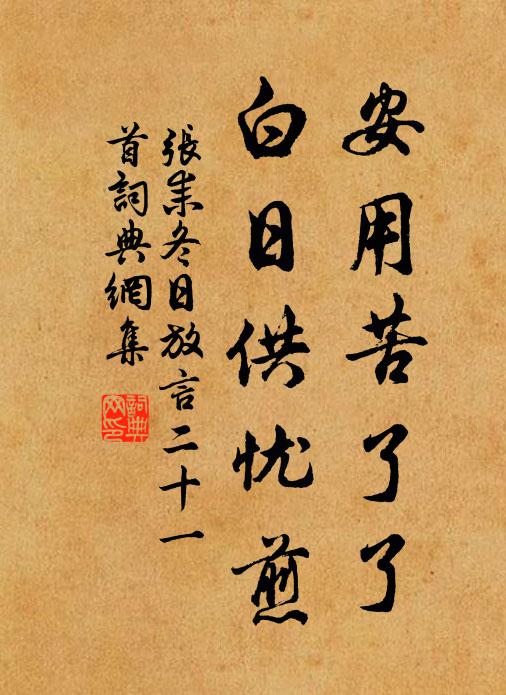 安用苦了了
白日供忧煎
張耒冬日放言二十一
首詞典網集
詞典
网印